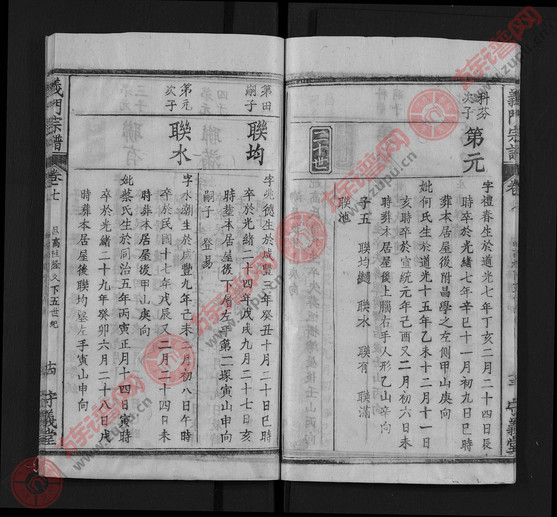 義門宗譜
科芬
次子
第元
字禮春生於道光七年丁亥二月二十四日辰
時卒於光緒七年辛巳十一月初九日巳時
葬本居屋後附昌學之左側甲山庚向
妣何氏生於道光十五年乙未十二月十一日
亥時卒於宣統元年己酉又二月初六日未
時葬本居屋後上腦右手人形乙山辛向
子五 聯均 聯水 聯有 聯滿
聯池
三十世
守義堂
第田
嗣子
聯均
字堯德生於咸豐三年癸丑十月二十日巳時
卒於光緒二十四年戊戌九月二十七日亥
時葬本居屋後下層左第二塚寅山申向
嗣子 登易
第元
次子
聯水
字水潮生於咸豐九年己未二月初八日午時
卒於民國十七年戊辰又二月二十四日未
時葬本居屋後甲山庚向
妣蔡氏生於同治五年丙寅正月十四日寅時
卒於光緒二十九年癸卯六月二十八日戌
時葬本居屋後聯均墓左手寅山申向
義門宗譜
卷七
下五世紀
守義堂
族譜网
www.zupu.cn